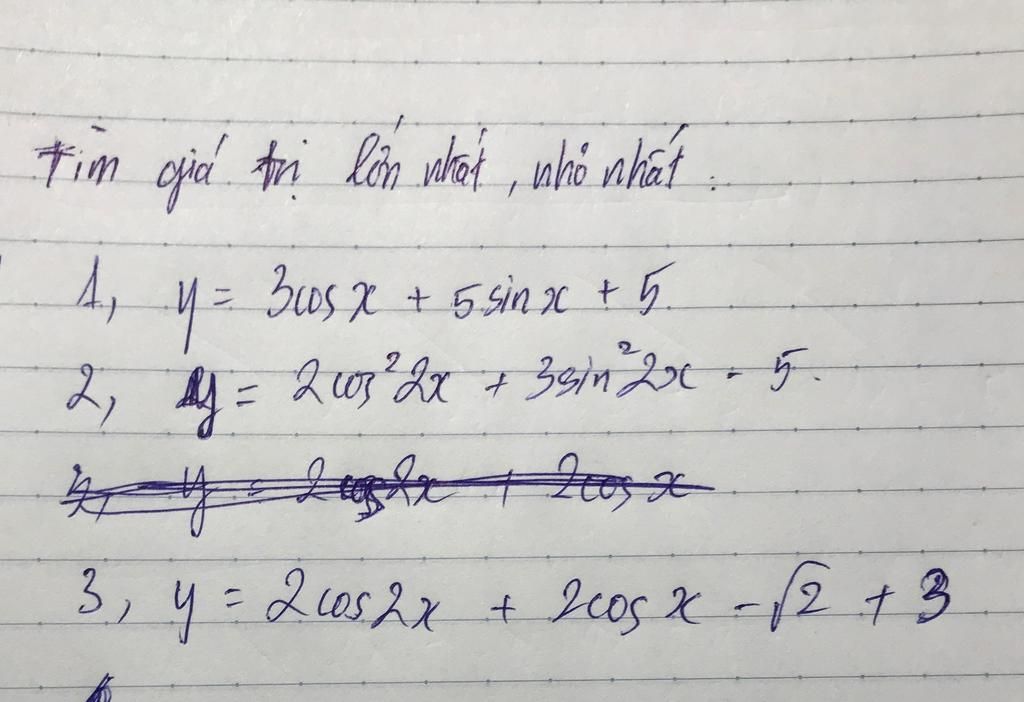 Tìm giá trị lớn nhất, nhỏ nhất:
1, y = 3cosx + 5sinx + 5.
2, y = 2cos²2x + 3sin²2x - 5.
3, y = 2cos2x + 2cosx
3, y = 2cos2x + 2cosx - √2 + 3